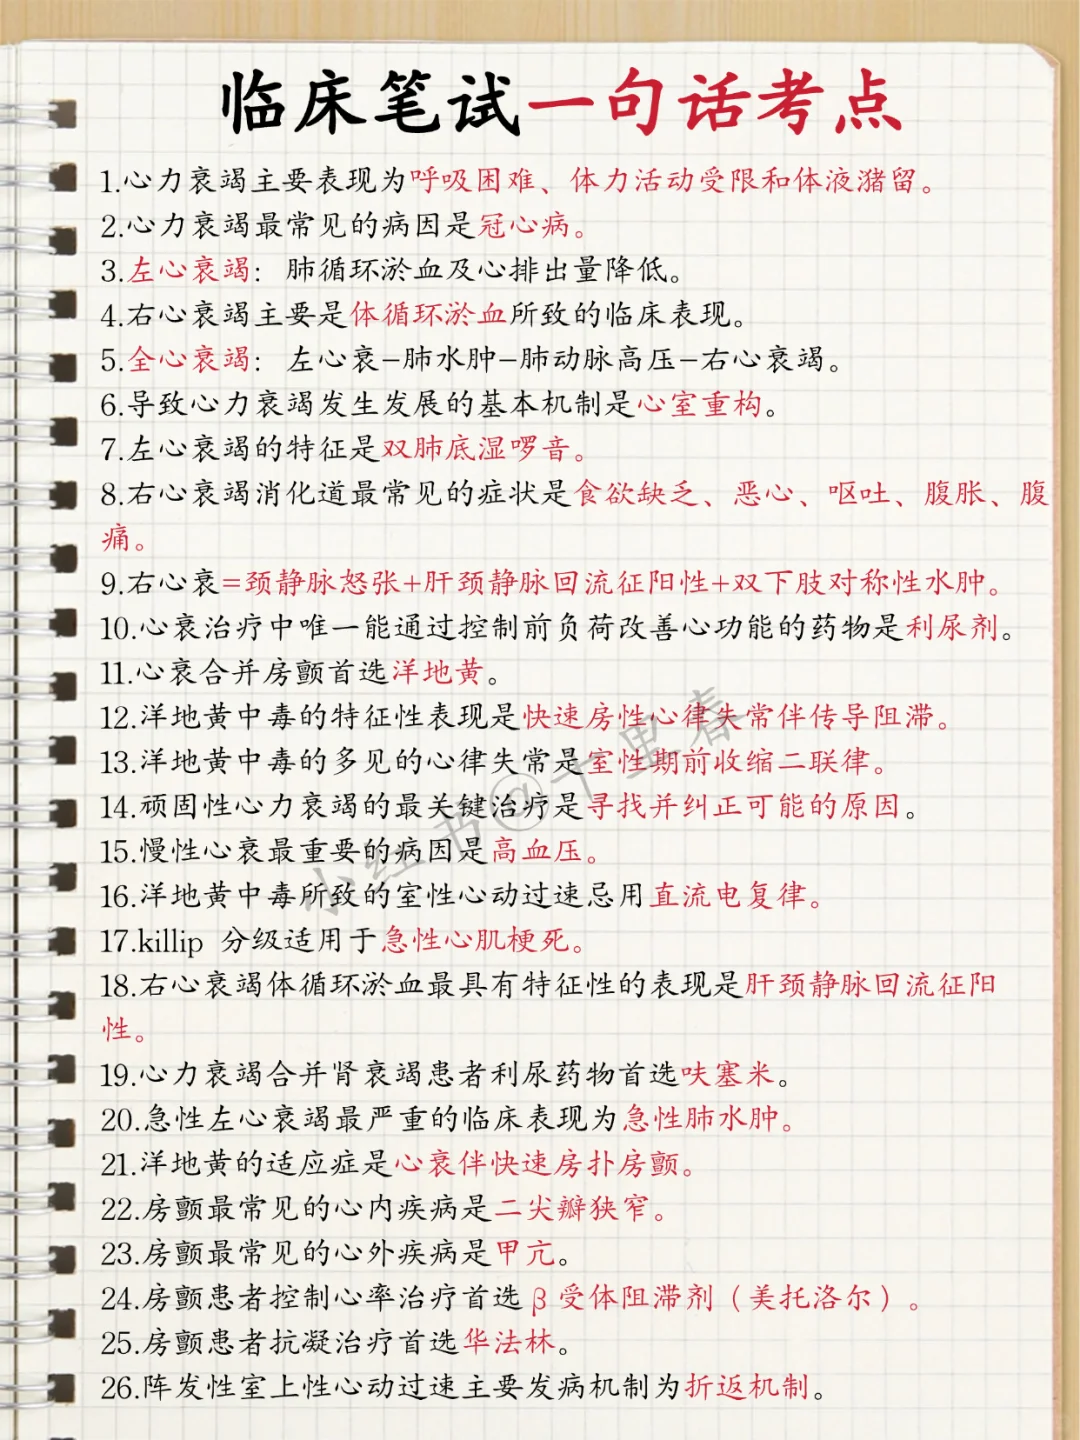 临床笔试一句话考点
1.心力衰竭主要表现为呼吸困难、体力活动受限和体液潴留。
2.心力衰竭最常见的病因是冠心病。
3.左心衰竭：肺循环淤血及心排出量降低。
4.右心衰竭主要是体循环淤血所致的临床表现。
5.全心衰竭：左心衰–肺水肿–肺动脉高压–右心衰竭。
6.导致心力衰竭发生发展的基本机制是心室重构。
7.左心衰竭的特征是双肺底湿啰音。
8.右心衰竭消化道最常见的症状是食欲缺乏、恶心、呕吐、腹胀、腹
痛。
9.右心衰=颈静脉怒张+肝颈静脉回流征阳性+双下肢对称性水肿。
10.心衰治疗中唯一能通过控制前负荷改善心功能的药物是利尿剂。
11.心衰合并房颤首选洋地黄。
12.洋地黄中毒的特征性表现是快速房性心律失常伴传导阻滞。
13.洋地黄中毒的多见的心律失常是室性期前收缩二联律。
14.顽固性心力衰竭的最关键治疗是寻找并纠正可能的原因。
15.慢性心衰最重要的病因是高血压。
16.洋地黄中毒所致的室性心动过速忌用直流电复律。
17.killip 分级适用于急性心肌梗死。
18.右心衰竭体循环淤血最具有特征性的表现是肝颈静脉回流征阳
性。
19.心力衰竭合并肾衰竭患者利尿药物首选呋塞米。
20.急性左心衰竭最严重的临床表现为急性肺水肿。
21.洋地黄的适应症是心衰伴快速房扑房颤。
22.房颤最常见的心内疾病是二尖瓣狭窄。
23.房颤最常见的心外疾病是甲亢。
24.房颤患者控制心率治疗首选β受体阻滞剂（美托洛尔）。
25.房颤患者抗凝治疗首选华法林。
26.阵发性室上性心动过速主要发病机制为折返机制。
小红书@十里春